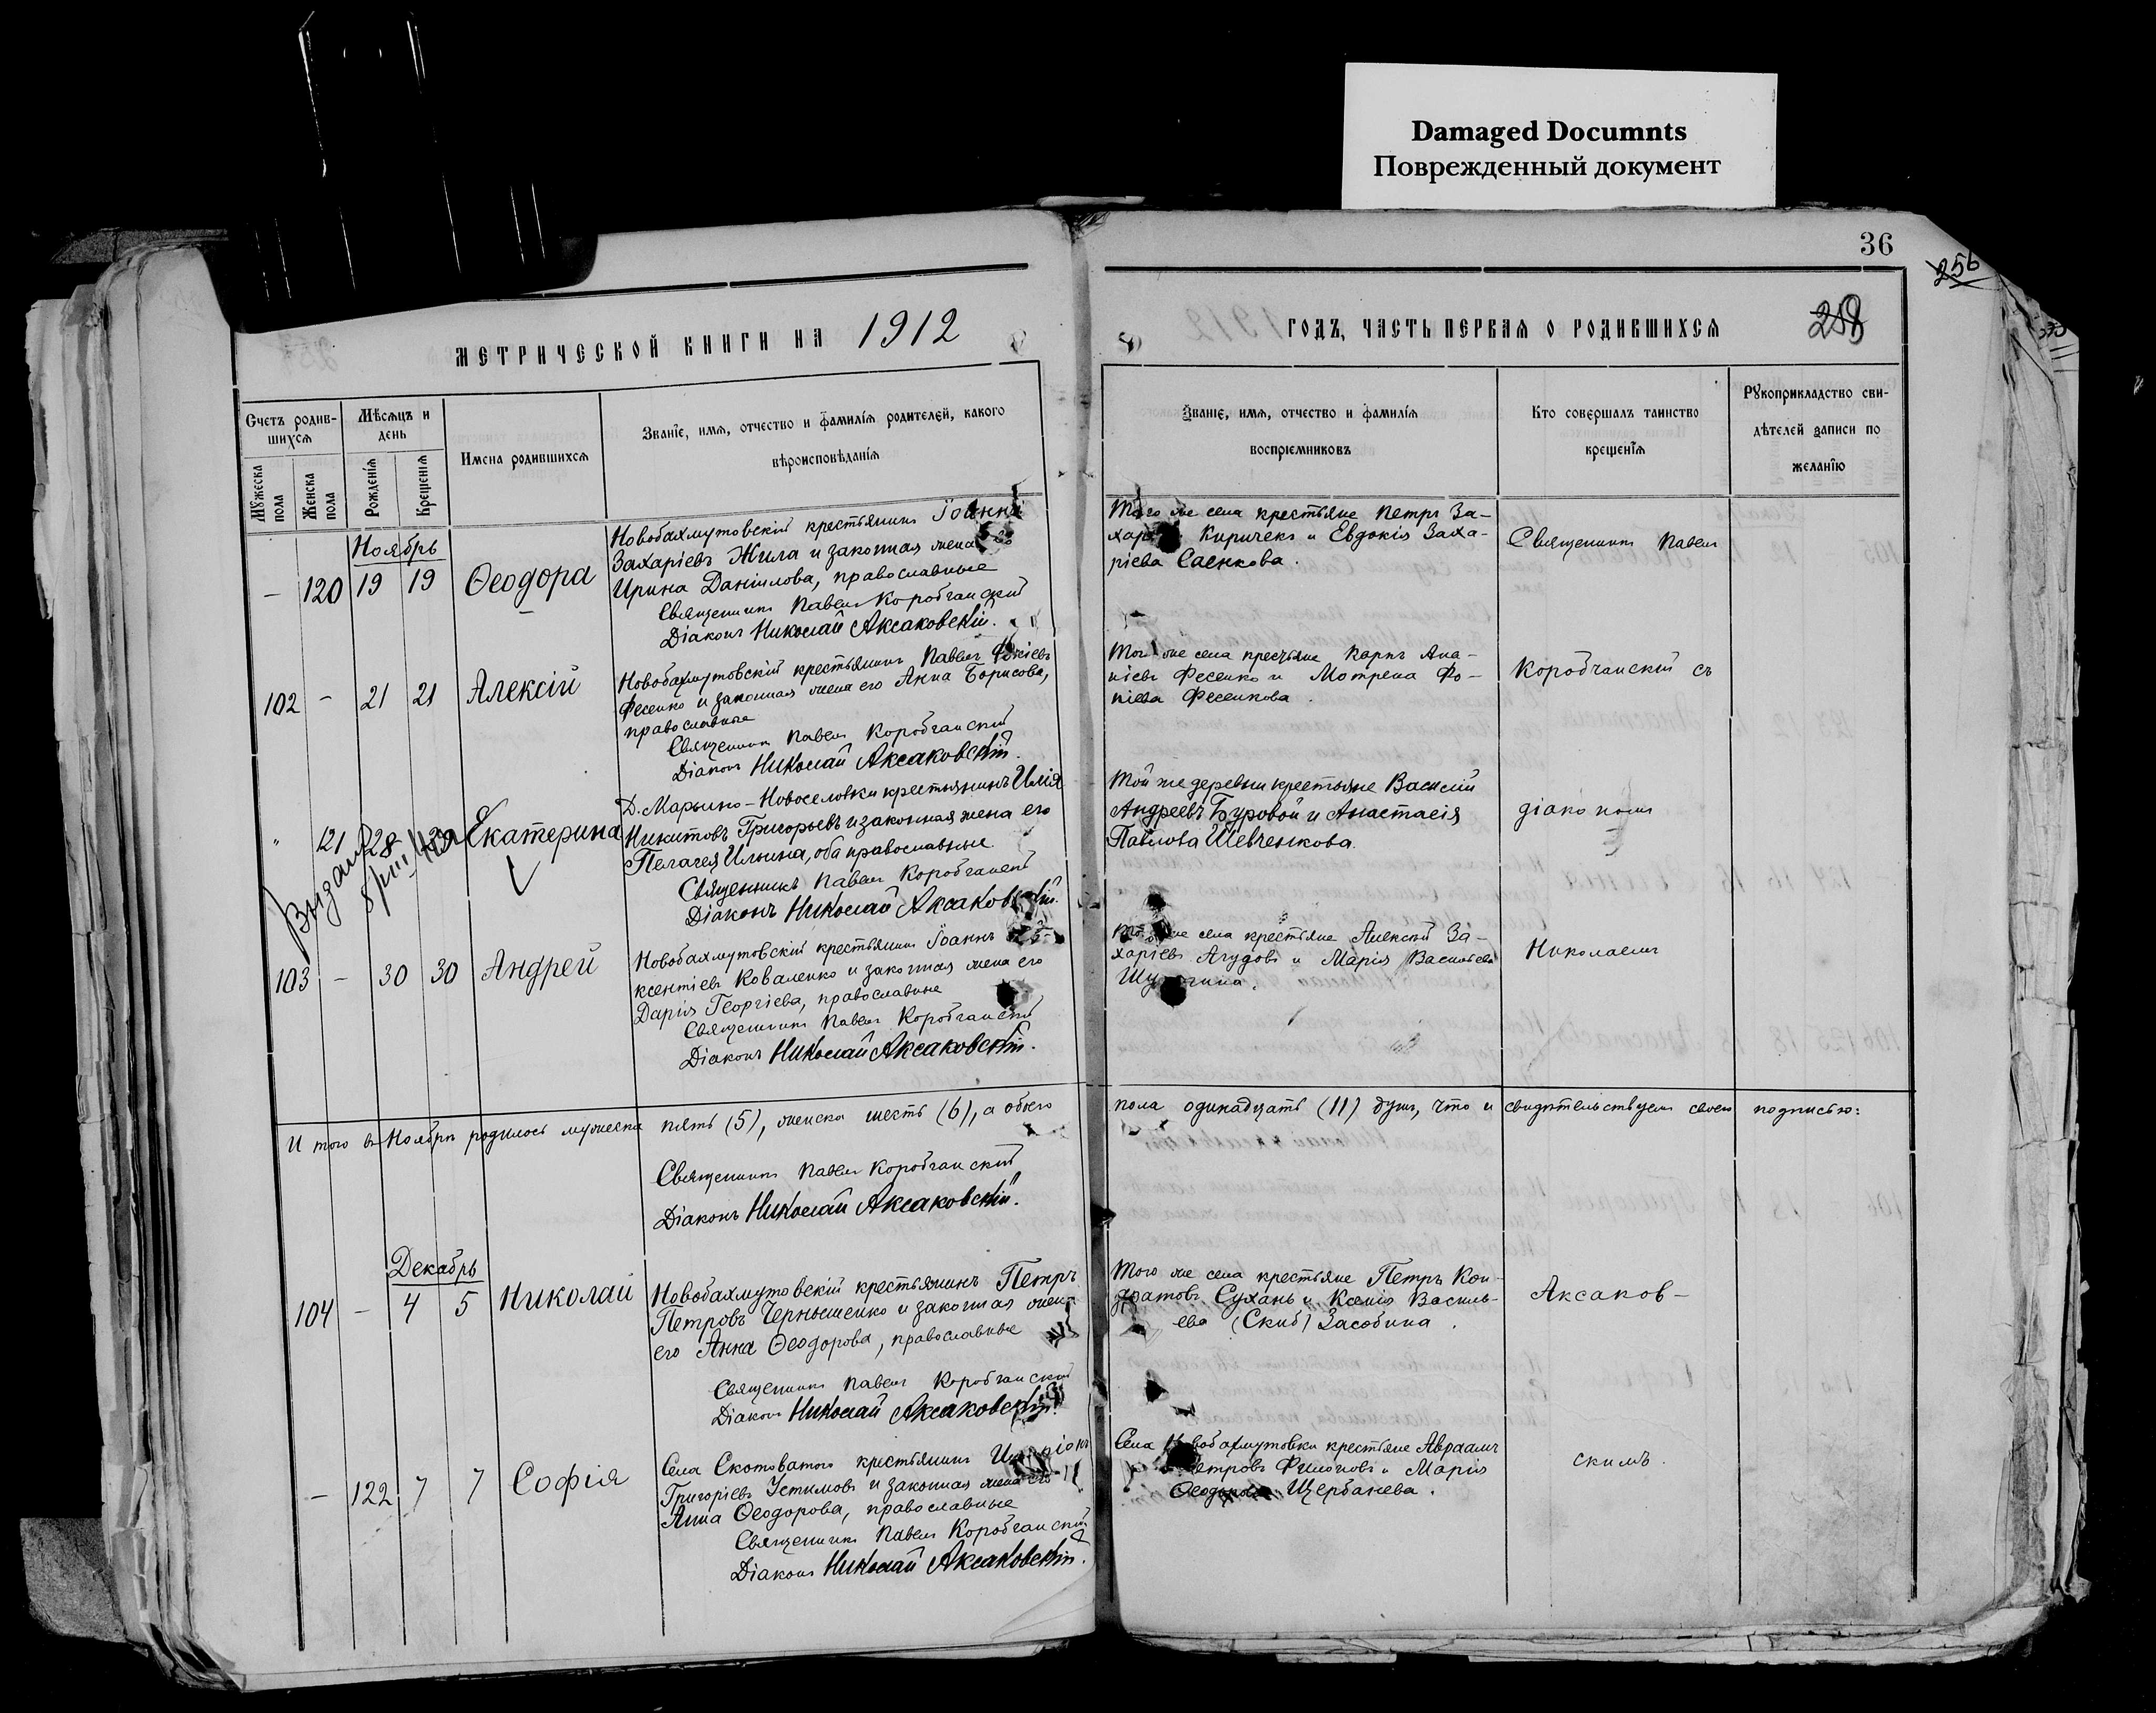 Damaged Documnts
Поврежденный документ
36
256
МЕТРИЧЕСКОЙ КНИГИ НА 1912
ГОДЪ, ЧАСТЬ ПЕРВАЯ О РОДИВШИХСЯ
Счетъ родив-
шихся
Мужеска пола
Женска пола
Мѣсяцъ и
день
Рожденія
Крещенія
Имена родившихся
Званіе, имя, отчество и фамилія родителей, какого
вѣроисповѣданія
Званіе, имя, отчество и фамилія
воспріемниковъ
Кто совершалъ таинство
крещенія
Рукоприкладство сви-
дѣтелей записи по
желанію
Ноябрь
– 120 19 19 Ѳеодора
Новобахмутовскій крестьянинъ Іоаннъ
Захаріевъ Жила и законная жена его
Ирина Даніилова, православные
Священникъ Павелъ Коробчанский
Діаконъ Николай Аксаковскій.
Того же села крестьяне Петръ За-
Киричекъ и Евдокія Заха-
ріева Саенкова.
Священникъ Павелъ
102 – 21 21 Алексій
Новобахмутовскій крестьянинъ Павелъ
Фесенко и законная жена его Анна Борисова,
православные
Священникъ Павелъ Коробчанский
Діаконъ Николай Аксаковскій.
Того же села крестьяне Карпъ Ана-
ніевъ Фесенко и Мотрена Фо-
Фесенкова.
Коробчанскій съ
" 121 28 Екатерина
Выдана
Д. Марьино-Новоселовки крестьянинъ Илія
Никитовъ Григорьевъ и законная жена его
Пелагея Ильина, оба православные.
Священникъ Павелъ Коробчанский
Діаконъ Николай Аксаковскій.
Той же деревни крестьяне Василій
Андреевъ Буровой и Анастасія
Павлова Шевченкова.
діакономъ
103 – 30 30 Андрей
Новобахмутовскій крестьянинъ Іоаннъ
ксентіевъ Коваленко и законная жена его
Дарія Георгіева, православные
Священникъ Павелъ Коробчанский
Діаконъ Николай Аксаковскій.
же села крестьяне Алексѣй За-
харіевъ и Марія Васильева
Николаемъ
И того въ Ноябрѣ родилось мужеска пять (5), женска шесть (6), а обоего
пола одинадцать (11) душъ, что и свидѣтельствуемъ своею подписью:
Священникъ Павелъ Коробчанский
Діаконъ Николай Аксаковскій.
Декабрь
104 – 4 5 Николай
Новобахмутовскій крестьянинъ Петръ
Петровъ Чернышенко и законная жена
его Анна Ѳеодорова, православные
Священникъ Павелъ Коробчанский
Діаконъ Николай Аксаковскій.
Того же села крестьяне Петръ Кон-
дратовъ Сухань и Ксенія Василь-
ева (Скиб) Засобина.
Аксаков-
– 122 7 7 Софія
Села Скотоватого крестьянинъ
Григоріевъ Устимовъ и законная жена его
Анна Ѳеодорова, православные
Священникъ Павелъ Коробчанский
Діаконъ Николай Аксаковскій.
Села Новобахмутовки крестьяне Авраамъ
Петровъ Филоновъ и Марія
Ѳеодорова Щербанева.
скимъ.